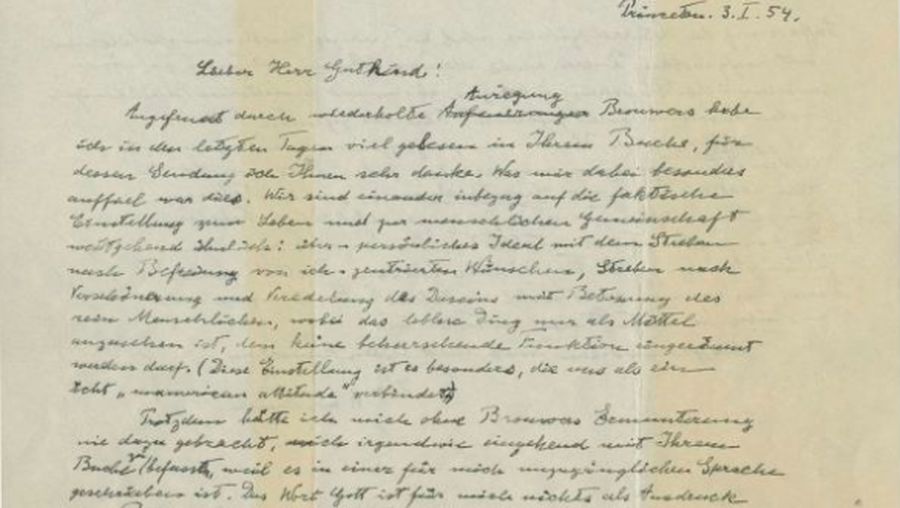 Princeton. 3. I. 54.
Lieber Herr Gutkind!
Anregung
Angefeuert durch wiederholte Brouwers habe
ich in den letzten Tagen viel gelesen in Ihrem Buche, für
dessen Sendung ich Ihnen sehr danke. Was mir dabei besonders
auffiel war dies. Wir sind einander inbezug auf die faktische
Einstellung zum Leben und zur menschlichen Gemeinschaft
weitgehend ähnlich: persönliches Ideal mit dem Streben
nach Befreiung von ich-zentrierten Wünschen, Streben nach
Verschönerung und Veredelung des Daseins mit Betonung des
rein Menschlichen, wobei das leblose Ding nur als Mittel
anzusehen ist, dem keine beherrschende Funktion eingeräumt
werden darf. (Diese Einstellung ist es besonders, die uns als ein
echt „unamerican attitude" verbindet)
Trotzdem hätte ich mich ohne Brouwers Ermunterung
nie dazu gebracht, mich irgendwie eingehend mit Ihrem
Buche zu befassen, weil es in einer für mich unzugänglichen Sprache
geschrieben ist. Das Wort Gott ist für mich nichts als Ausdruck